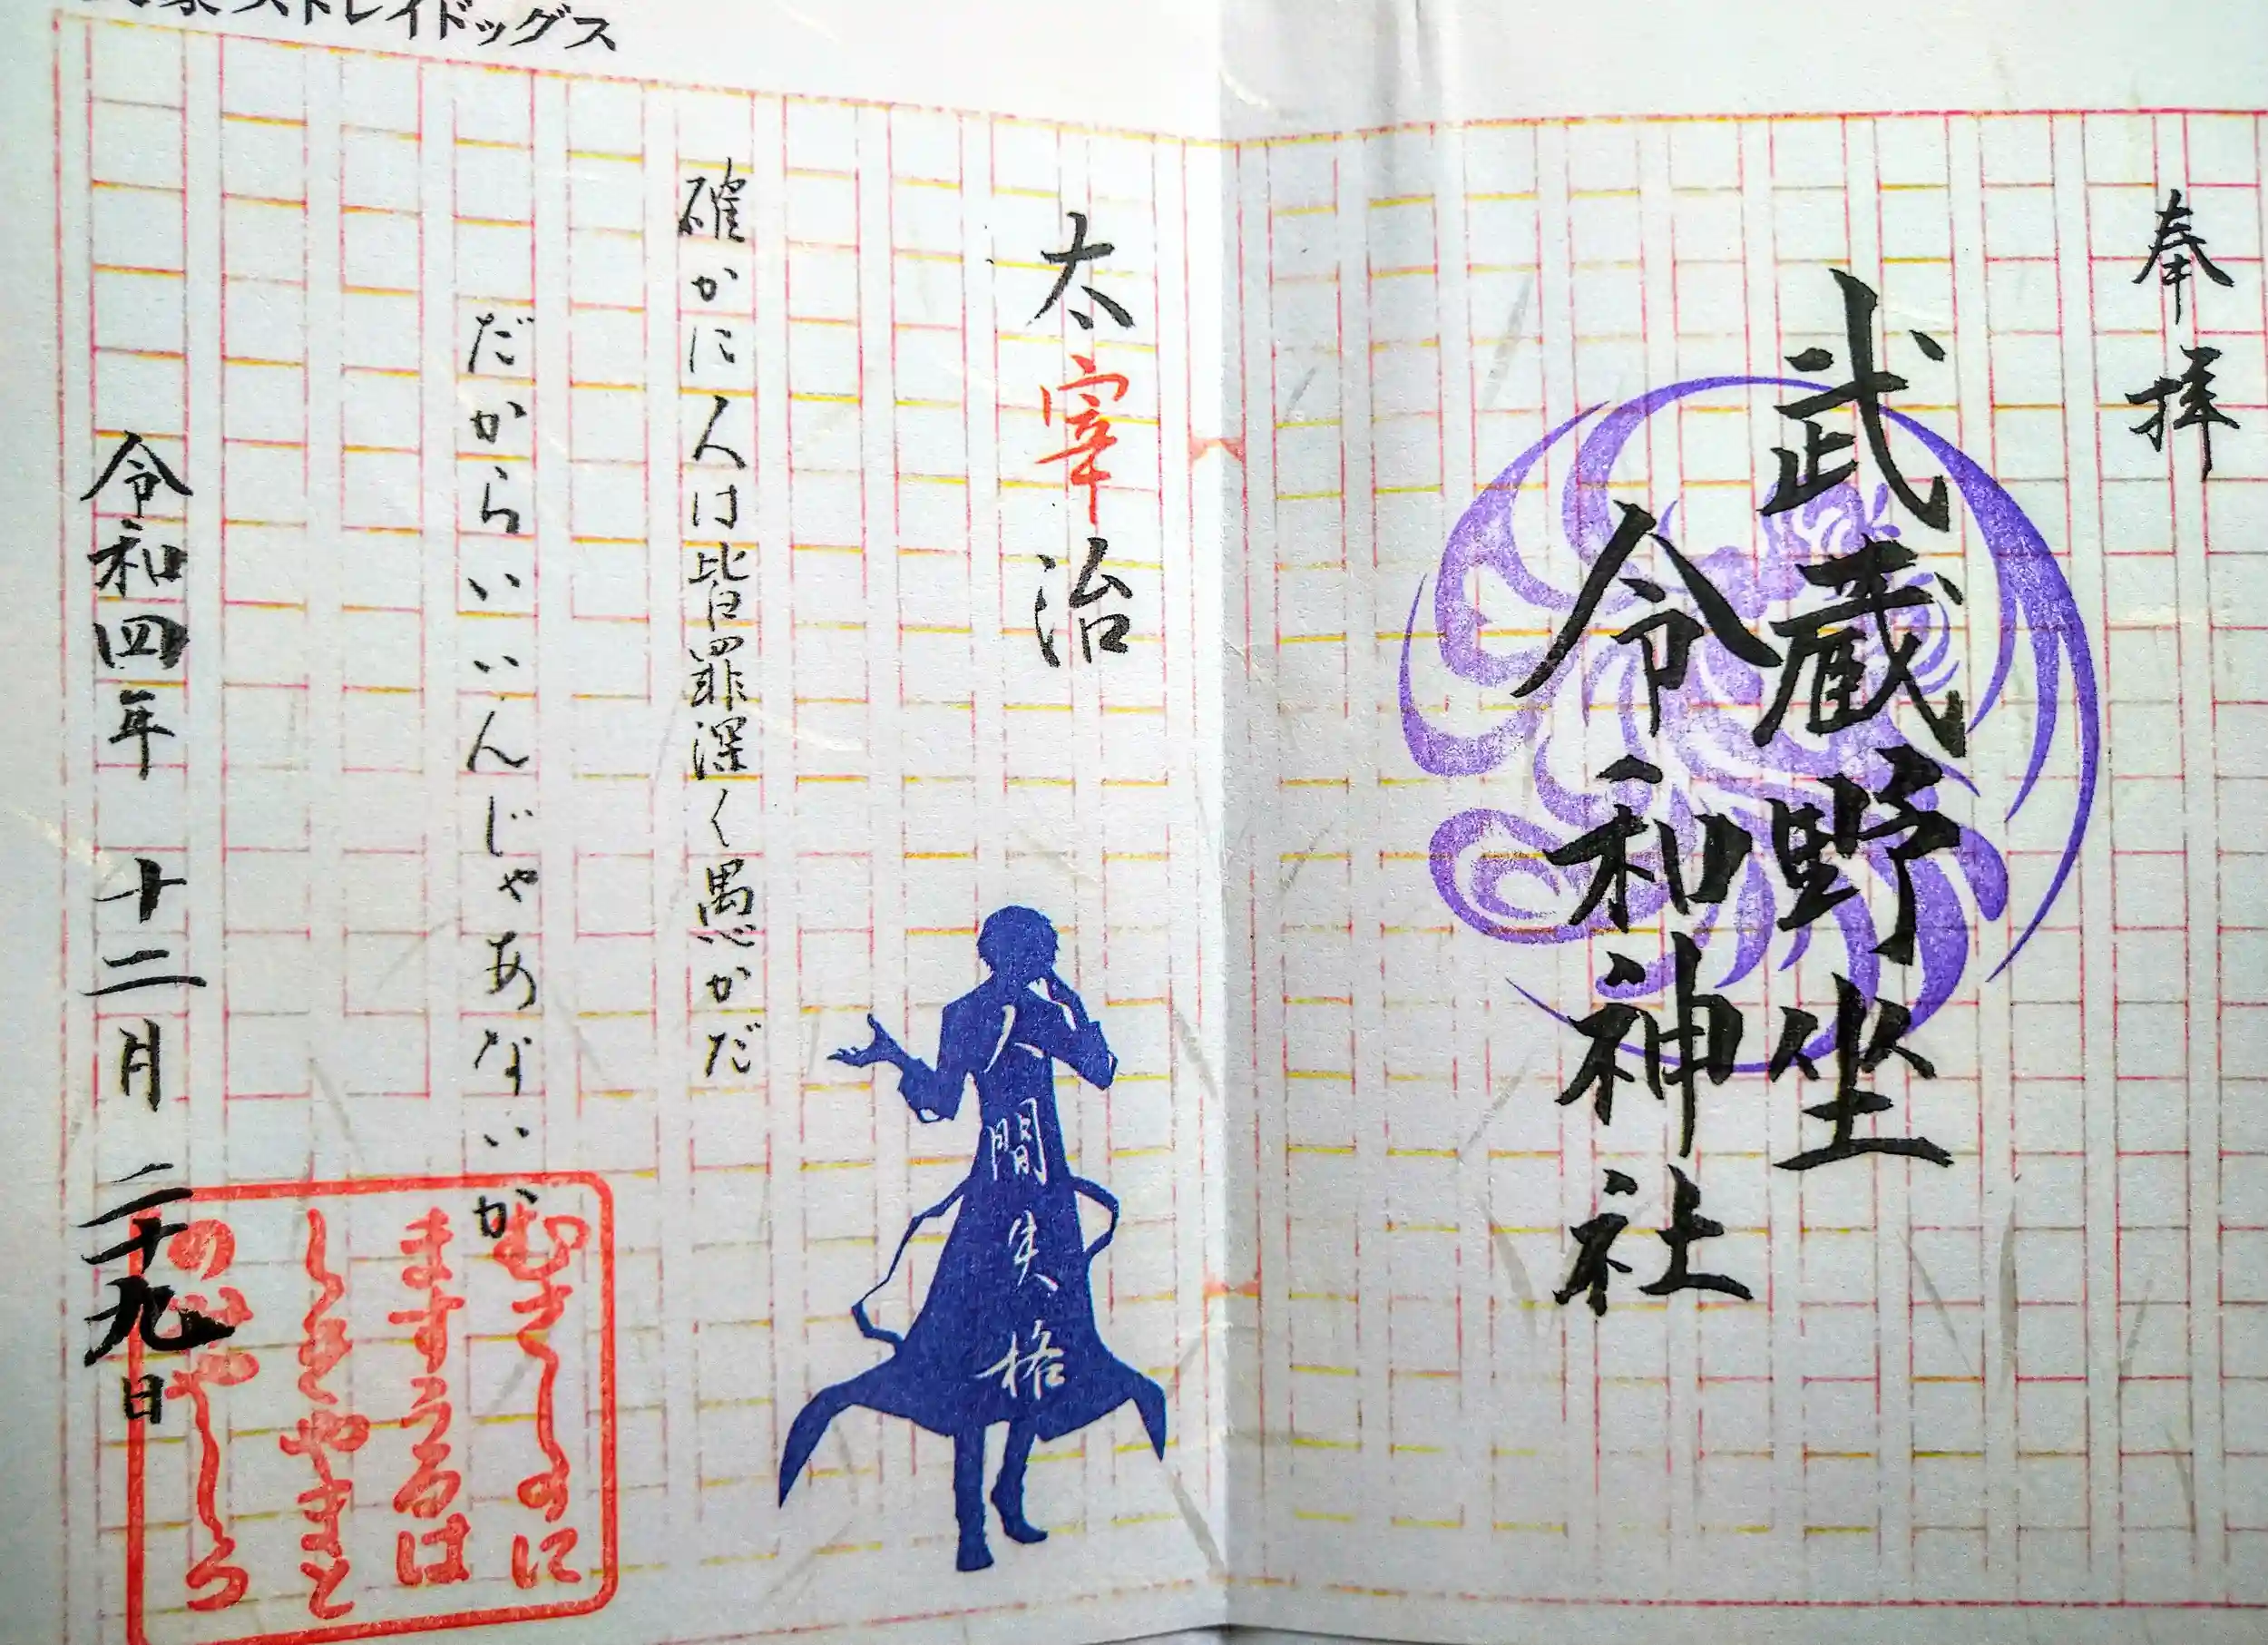 奉拝
武蔵野坐
令和神社
太宰治
人間失格
確かに人は皆罪深く愚かだ
だからいいんじゃあないか
令和四年 十二月 二十九日
むさしのに
ますうるは
しきやまと
のみやしろ
ストレイドッグス